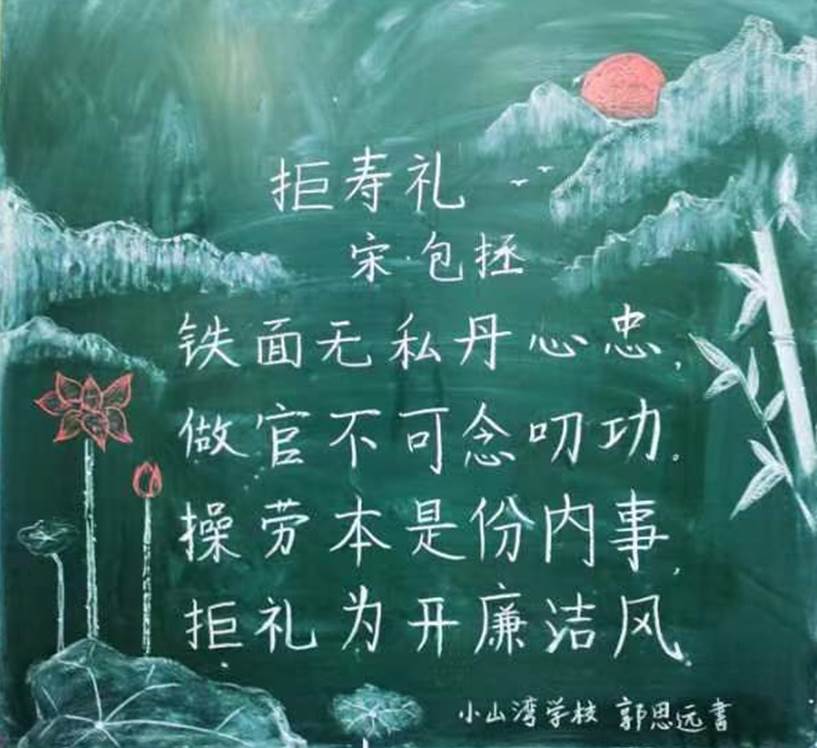 拒寿礼
宋·包拯
铁面无私丹心忠，
做官不可念叨功。
操劳本是份内事，
拒礼为开廉洁风。
小山湾学校 郭思远書